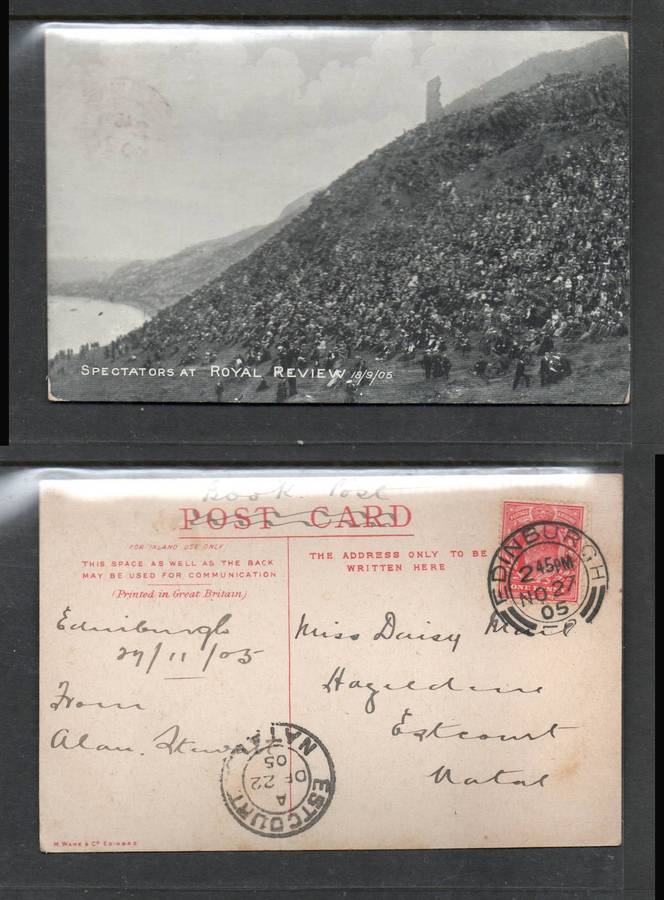 SPECTATORS AT ROYAL REVIEW 18/9/05
Book Post
POST CARD
FOR INLAND USE ONLY
THIS SPACE AS WELL AS THE BACK
MAY BE USED FOR COMMUNICATION
(Printed in Great Britain)
THE ADDRESS ONLY TO BE
WRITTEN HERE
EDINBURGH
2 45PM
NO 27
05
ONE PENNY
Edinburgh
27/11/05
From
Alan. Stewart
Miss Daisy
Estcourt
Natal
ESTCOURT NATAL
A
DE 22
05
M. WANE & CO EDINBRO